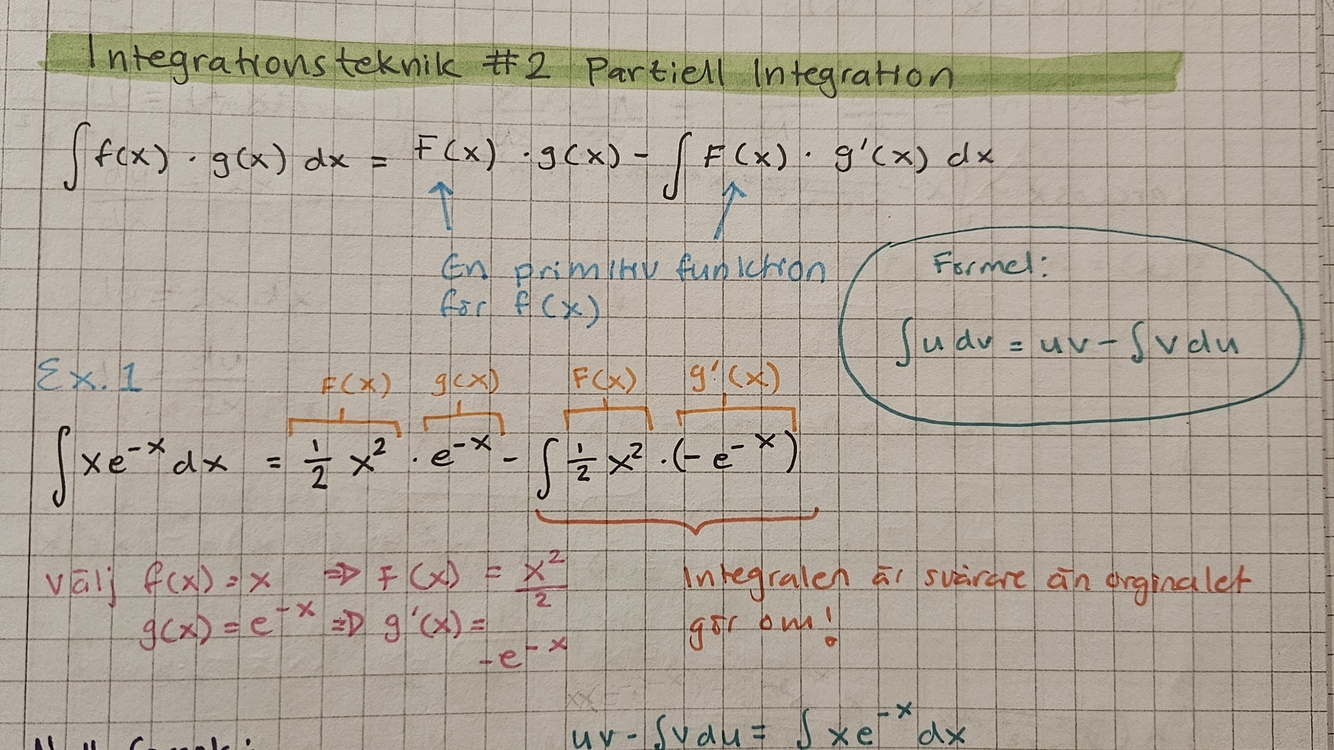 Integrationsteknik #2 Partiell Integration
∫ f(x) · g(x) dx = F(x) · g(x) - ∫ F(x) · g'(x) dx
En primitiv funktion
för f(x)
Formel:
∫ u dv = uv - ∫ v du
Ex. 1
F(x) g(x) F(x) g'(x)
∫ xe^-x dx = 1/2 x^2 · e^-x - ∫ 1/2 x^2 · (-e^-x)
Välj f(x) = x ⇒ F(x) = x^2/2
g(x) = e^-x ⇒ g'(x) =
-e^-x
Integralen är svårare än orginalet
gör om!
uv - ∫vdu = ∫ xe^-x dx